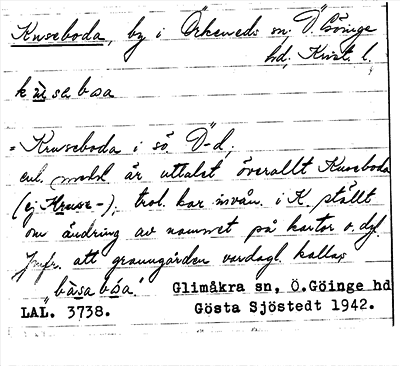 Kuseboda, by i Örkeneds sn, Ö. Göinge
hd, Krist. l.
kusaboa
= Kruseboda i sö. Ö-d,
enl. medd. är uttalet överallt Kuseboda
(ej Kruse-), trol. har invån. i K. ställt
om ändring av namnet på kartor o. dyl.
Jmfr. att granngården vardagl. kallas
"båsaboa".
Glimåkra sn, Ö.Göinge hd
LAL. 3738. Gösta Sjöstedt 1942.